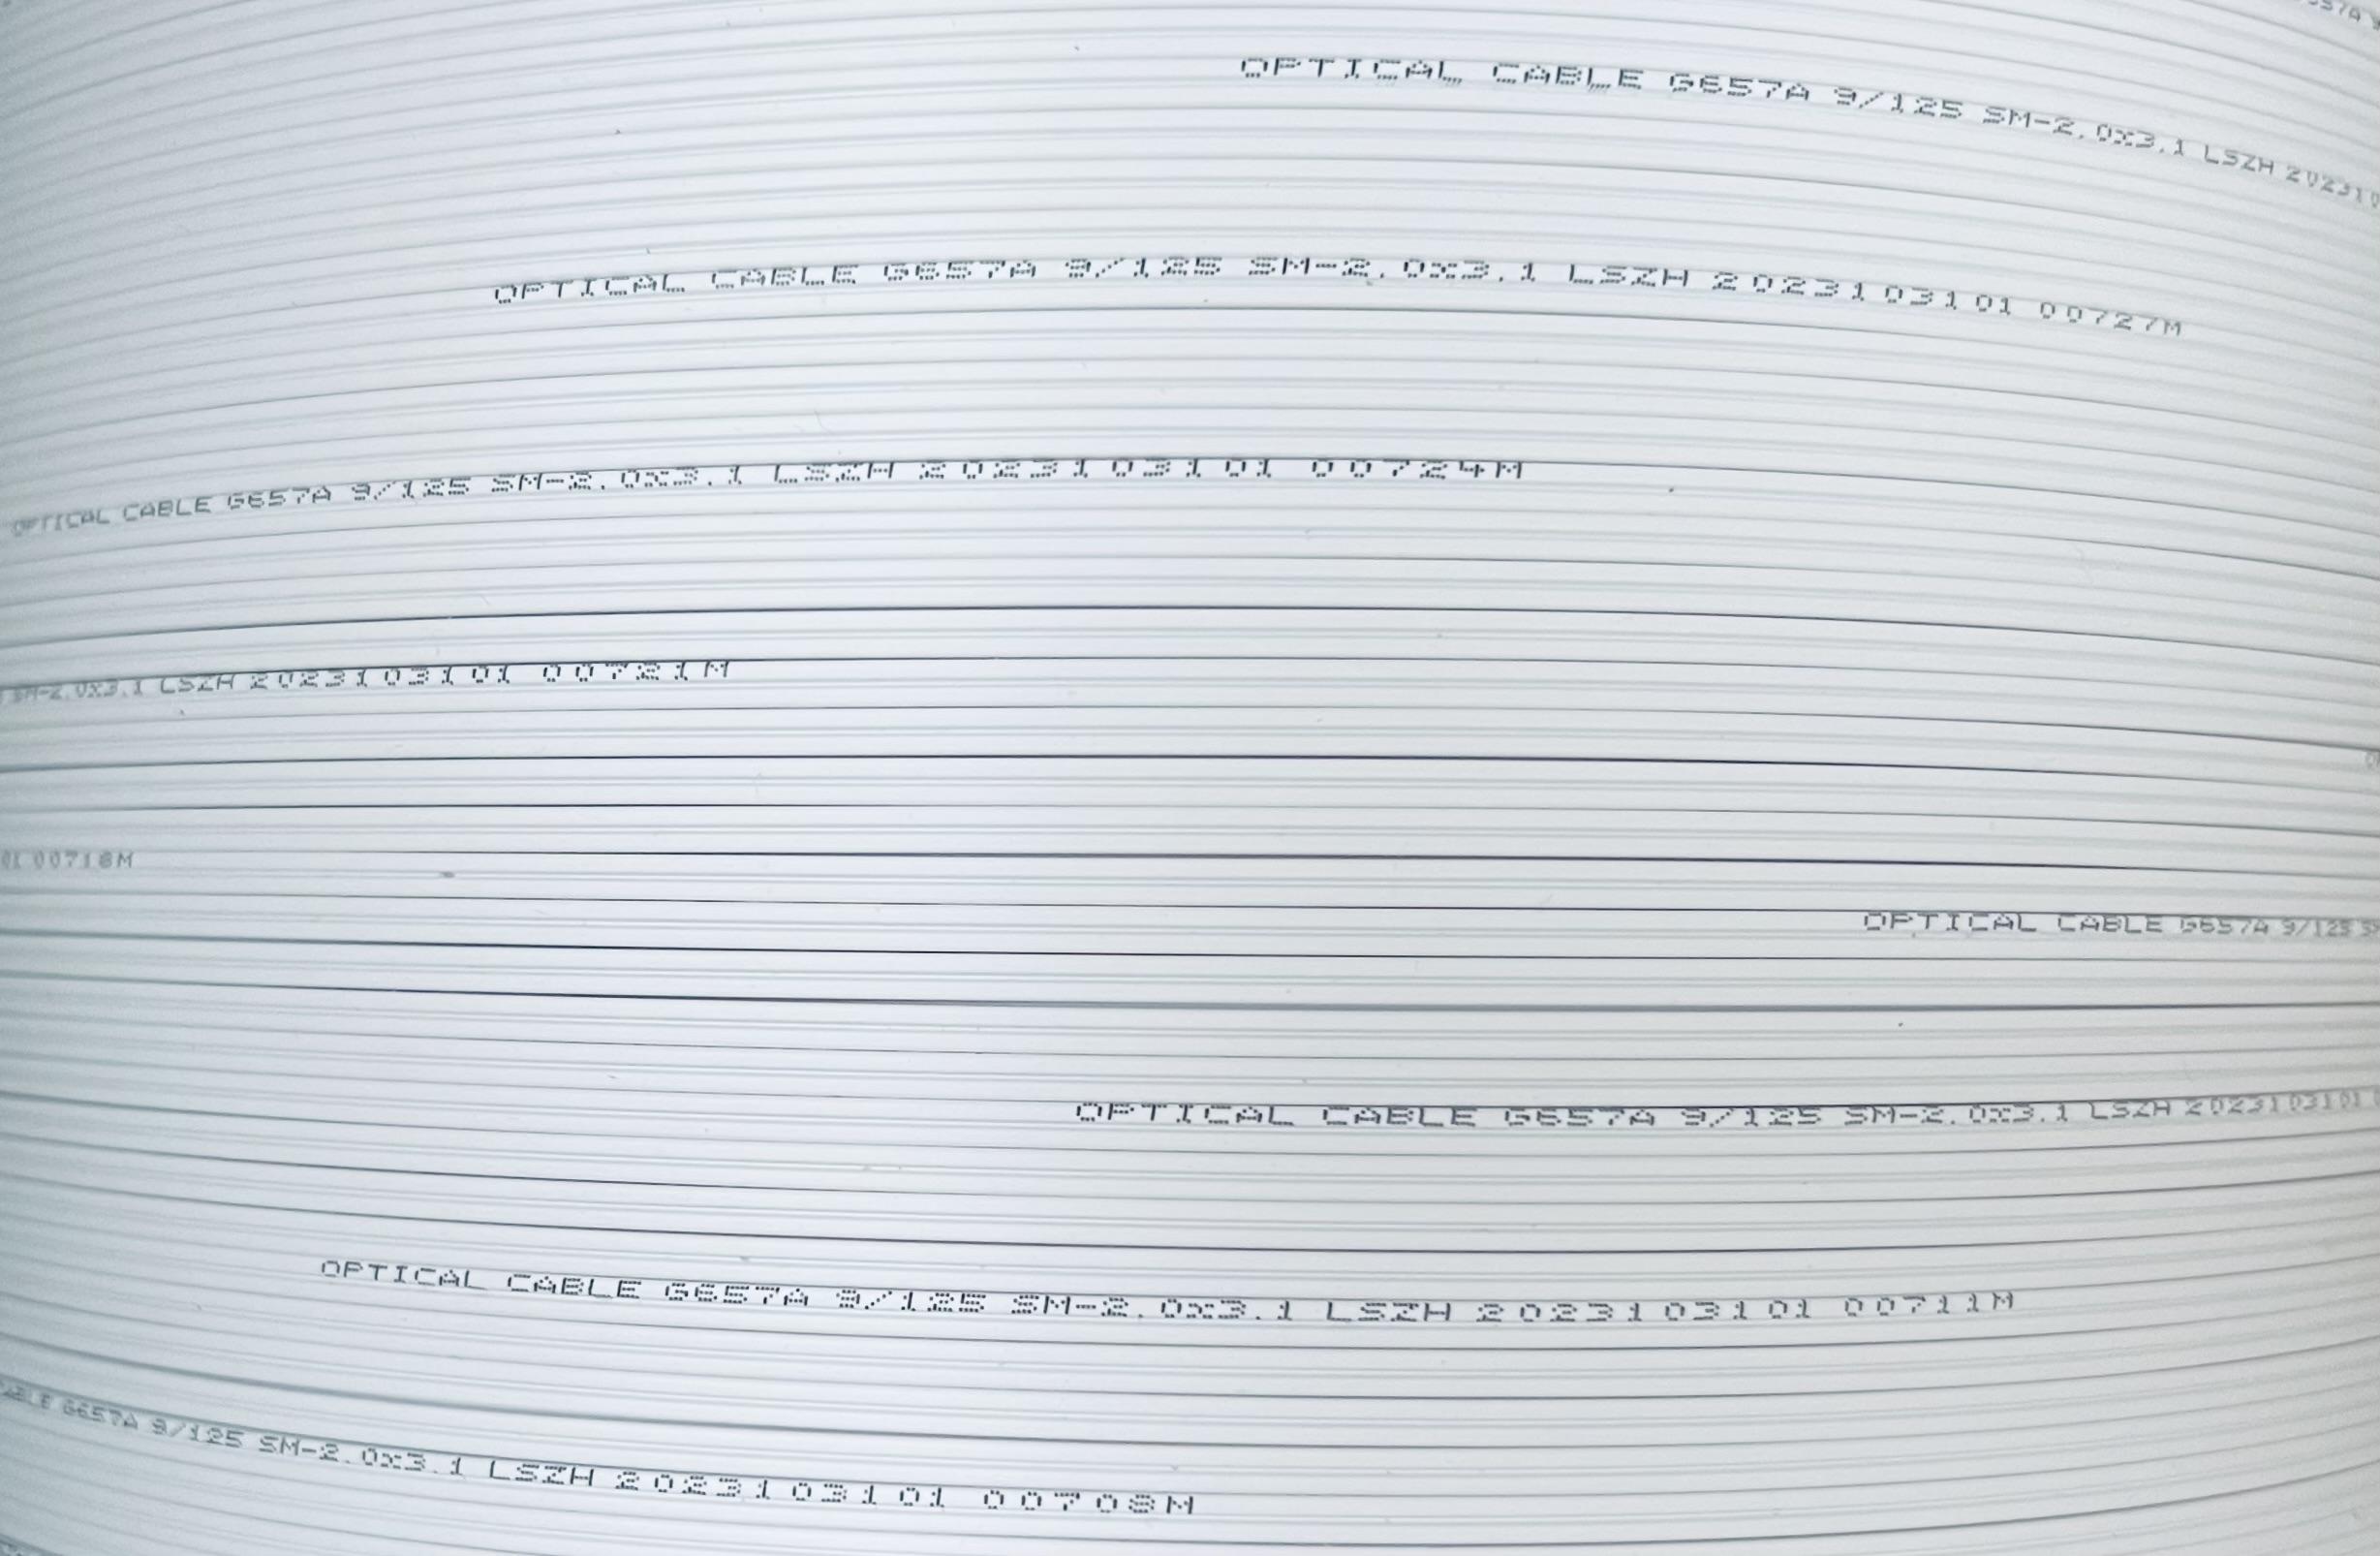 657A
OPTICAL CABLE G657A 9/125 SM-2.0x3.1 LSZH 202310
OPTICAL CABLE G657A 9/125 SM-2.0x3.1 LSZH 2023103101 00727M
OPTICAL CABLE G657A 9/125 SM-2.0x3.1 LSZH 2023103101 00724M
SM-2.0x3.1 LSZH 2023103101 00721M
01 00718M
OPTICAL CABLE G657A 9/125
OPTICAL CABLE G657A 9/125 SM-2.0x3.1 LSZH 2023103101
OPTICAL CABLE G657A 9/125 SM-2.0x3.1 LSZH 2023103101 00711M
CABLE G657A 9/125 SM-2.0x3.1 LSZH 2023103101 00708M